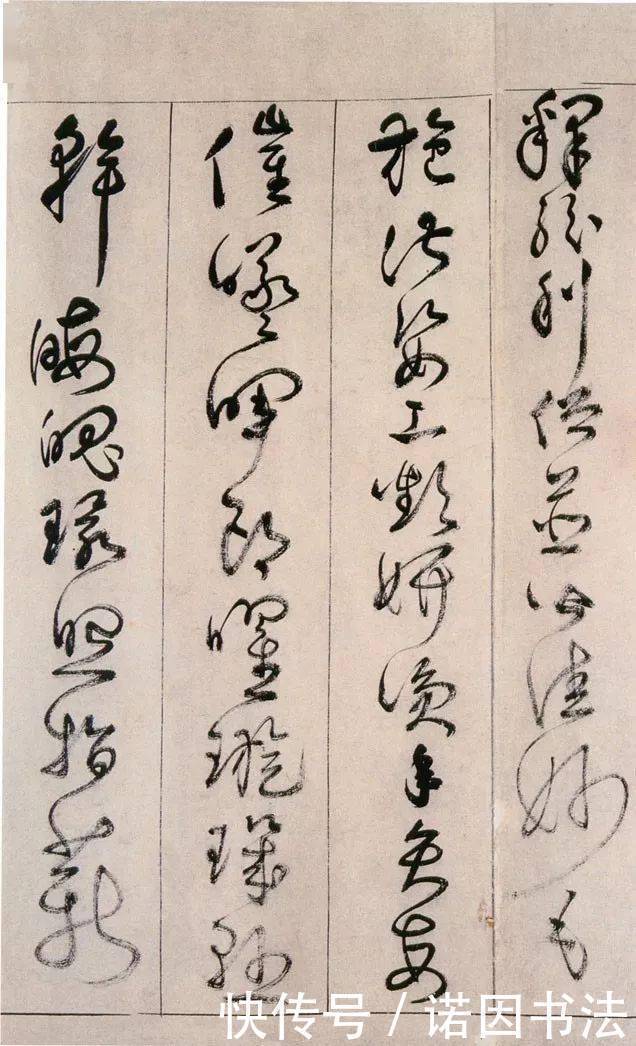 釋紛利俗並皆佳妙毛
施淑姿工顰妍笑年矢每
催曦暉朗曜璇璣懸
斡晦魄環照指薪
快传号 / 诺因书法